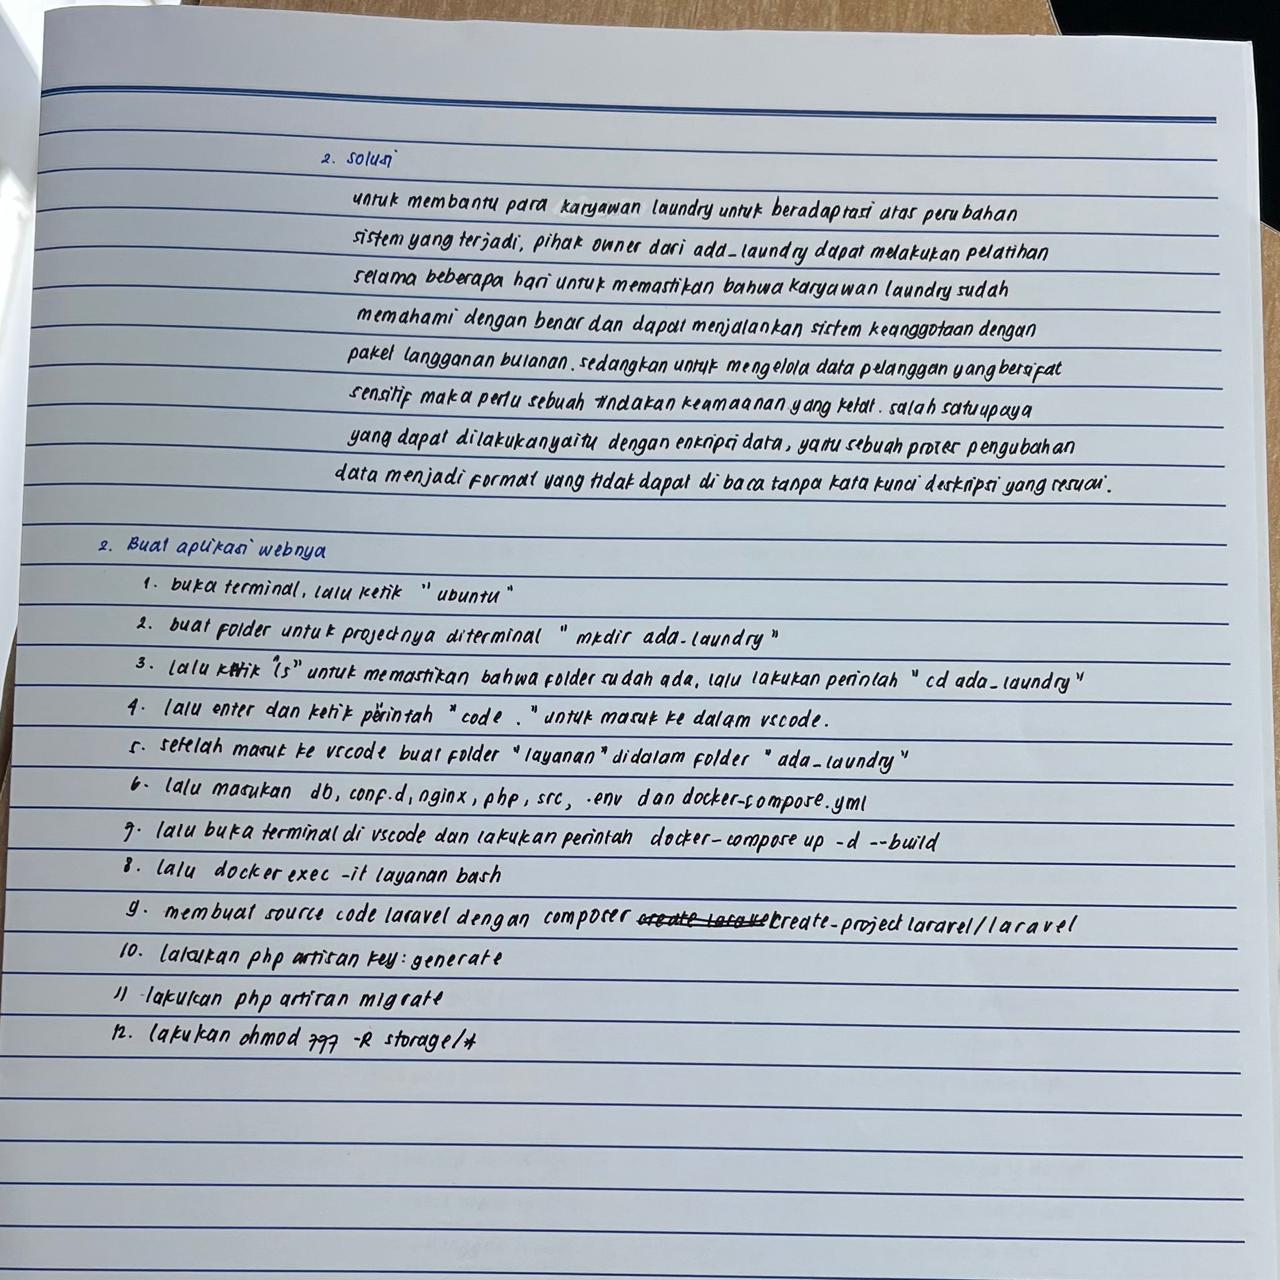 2. solusi
untuk membantu para karyawan laundry untuk beradaptasi atas perubahan
sistem yang terjadi, pihak owner dari ada_laundry dapat melakukan pelatihan
selama beberapa hari untuk memastikan bahwa karyawan laundry sudah
memahami dengan benar dan dapat menjalankan sistem keanggotaan dengan
paket langganan bulanan. sedangkan untuk mengelola data pelanggan yang bersifat
sensitif maka perlu sebuah tindakan keamaanan yang ketat. salah satu upaya
yang dapat dilakukan yaitu dengan enkripsi data, yaitu sebuah proses pengubahan
data menjadi format yang tidak dapat di baca tanpa kata kunci deskripsi yang sesuai.
2. Buat aplikasi webnya
1. buka terminal, lalu ketik "ubuntu"
2. buat folder untuk projectnya diterminal "mkdir ada_laundry"
3. lalu ketik "ls" untuk memastikan bahwa folder sudah ada, lalu lakukan perintah "cd ada_laundry"
4. lalu enter dan ketik perintah "code ." untuk masuk ke dalam vscode.
5. setelah masuk ke vscode buat folder "layanan" didalam folder "ada_laundry"
6. lalu masukan db, conf.d, nginx, php, src, .env dan docker-compose.yml
7. lalu buka terminal di vscode dan lakukan perintah docker-compose up -d --build
8. lalu docker exec -it layanan bash
9. membuat source code laravel dengan composer create-project laravel/laravel
10. lakukan php artisan key:generate
11 lakukan php artisan migrate
12. lakukan chmod 777 -R storage/*